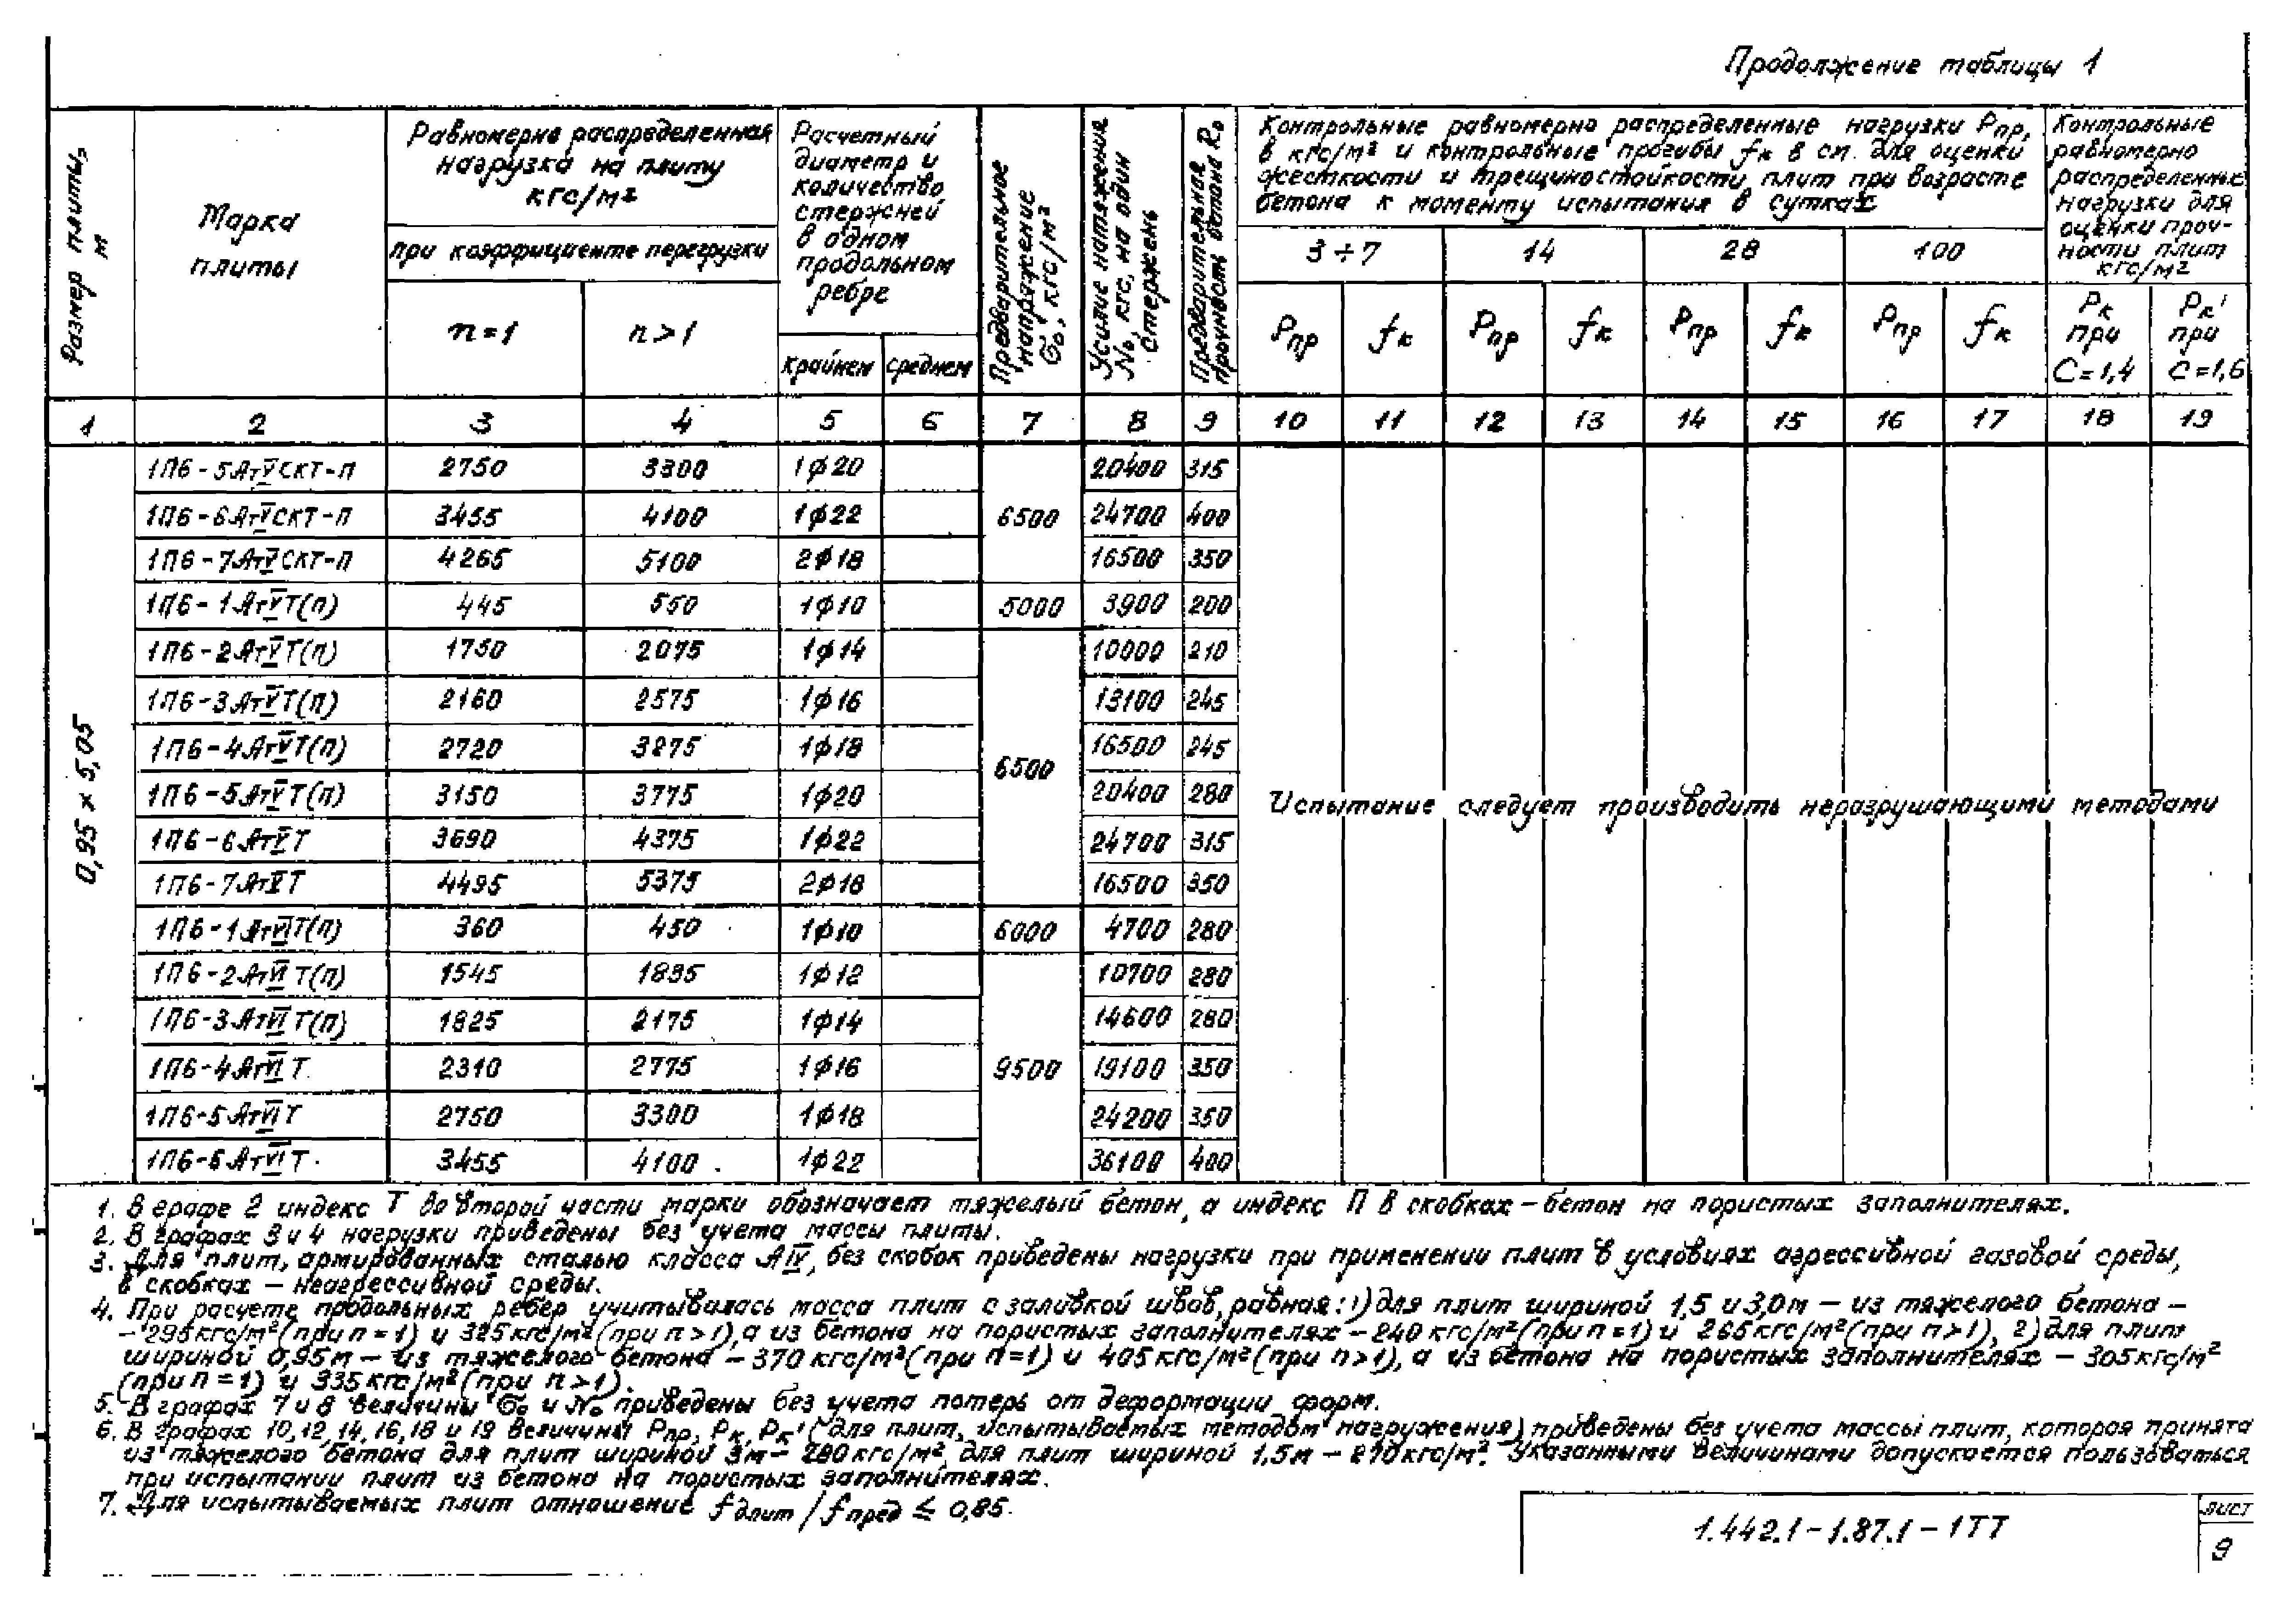 Продолжение таблицы 1
Размер плиты, м
Марка плиты
Равномерно распределенная нагрузка на плиту кгс/м²
при коэффициенте перегрузки
n=1
n>1
Расчетный диаметр и количество стержней в одном продольном ребре
крайнем
среднем
Предварительное напряжение σ₀, кгс/м²
Усилие натяжения N₀, кгс, на один стержень
Предварительная прочность бетона R₀
Контрольные равномерно распределенные нагрузки Рпр,
в кгс/м² и контрольные прогибы fк в см. для оценки
жесткости и трещиностойкости плит при возрасте
бетона к моменту испытания в сутках
3÷7 14 28 100
Рпр fк Рпр fк Рпр fк Рпр fк
Контрольные равномерно распределенные нагрузки для оценки прочности плит кгс/м²
Рк при С=1,4
Рк' при С=1,6
1 2 3 4 5 6 7 8 9 10 11 12 13 14 15 16 17 18 19
0,95 x 5,05
1П6-5АтVСКТ-П 2750 3300 1ф20 20400 315
1П6-6АтVСКТ-П 3455 4100 1ф22 6500 24700 400
1П6-7АтVСКТ-П 4265 5100 2ф18 16500 350
1П6-1АтVТ(П) 445 550 1ф10 5000 3900 200
1П6-2АтVТ(П) 1750 2075 1ф14 10000 210
1П6-3АтVТ(П) 2160 2575 1ф16 13100 245
1П6-4АтVТ(П) 2720 3275 1ф18 6500 16500 245
1П6-5АтVТ(П) 3150 3775 1ф20 20400 280
Испытание следует производить неразрушающими методами
1П6-6АтVТ 3690 4375 1ф22 24700 315
1П6-7АтVТ 4495 5375 2ф18 16500 350
1П6-1АтVIТ(П) 360 450 1ф10 6000 4700 280
1П6-2АтVIТ(П) 1545 1835 1ф12 10700 280
1П6-3АтVIТ(П) 1825 2175 1ф14 14600 280
1П6-4АтVIТ 2310 2775 1ф16 9500 19100 350
1П6-5АтVIТ 2750 3300 1ф18 24200 350
1П6-6АтVIТ 3455 4100 1ф22 36100 400
1. В графе 2 индекс Т во второй части марки обозначает тяжелый бетон, а индекс П в скобках – бетон на пористых заполнителях.
2. В графах 3 и 4 нагрузки приведены без учета массы плиты.
3. Для плит, армированных сталью класса АIV, без скобок приведены нагрузки при применении плит в условиях агрессивной газовой среды,
в скобках – неагрессивной среды.
4. При расчете продольных ребер учитывалась масса плит с заливкой швов, равная: 1) для плит шириной 1,5 и 3,0м – из тяжелого бетона –
– 295кгс/м² (при n=1) и 325кгс/м² (при n>1), а из бетона на пористых заполнителях – 240 кгс/м² (при n=1) и 265кгс/м² (при n>1), 2) для плит
шириной 0,95м – из тяжелого бетона – 370 кгс/м² (при n=1) и 405кгс/м² (при n>1), а из бетона на пористых заполнителях – 305кгс/м²
(при n=1) и 335кгс/м² (при n>1).
5. В графах 7 и 8 величины σ₀ и N₀ приведены без учета потерь от деформации форм.
6. В графах 10,12,14,16,18 и 19 величины Рпр, Рк, Рк' (для плит, испытываемых методом нагружения) приведены без учета массы плит, которая принята
из тяжелого бетона для плит шириной 3м – 280кгс/м², для плит шириной 1,5м – 270кгс/м². Указанными величинами допускается пользоваться
при испытании плит из бетона на пористых заполнителях.
7. Для испытываемых плит отношение fдлит/fпред ≤ 0,85.
1.442.1-1.87.1-1ТТ
лист
9